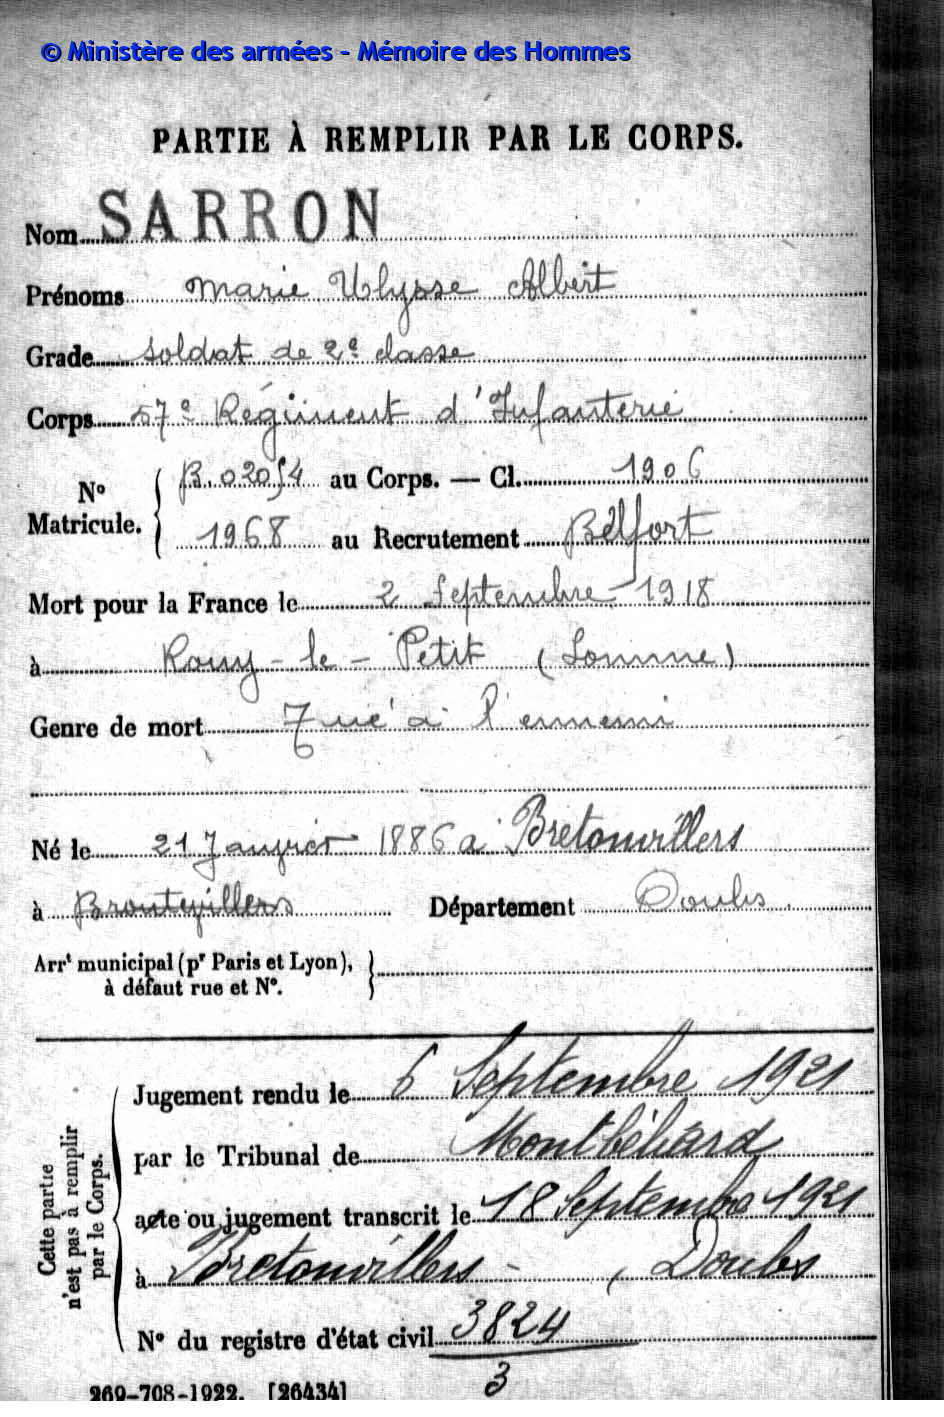 © Ministère des armées - Mémoire des Hommes
PARTIE À REMPLIR PAR LE CORPS.
Nom SARRON
Prénoms Marie Ulysse Albert
Grade soldat de 2e classe
Corps 57e Régiment d'Infanterie
N° Matricule. B.02054 au Corps. — Cl. 1906
1968 au Recrutement Belfort
Mort pour la France le 2 Septembre 1918
à Rouy-le-Petit (Somme)
Genre de mort Tué à l'ennemi
Né le 21 Janvier 1886 à Bretonvillers
à Brontevillers Département Doubs
Arrt municipal (pr Paris et Lyon),
à défaut rue et N°.
Cette partie
n'est pas à remplir
par le Corps.
Jugement rendu le 6 Septembre 1921
par le Tribunal de Montbéliard
acte ou jugement transcrit le 18 Septembre 1921
à Bretonvillers - , Doubs
N° du registre d'état civil 3824
3
269-708-1922. [26434]